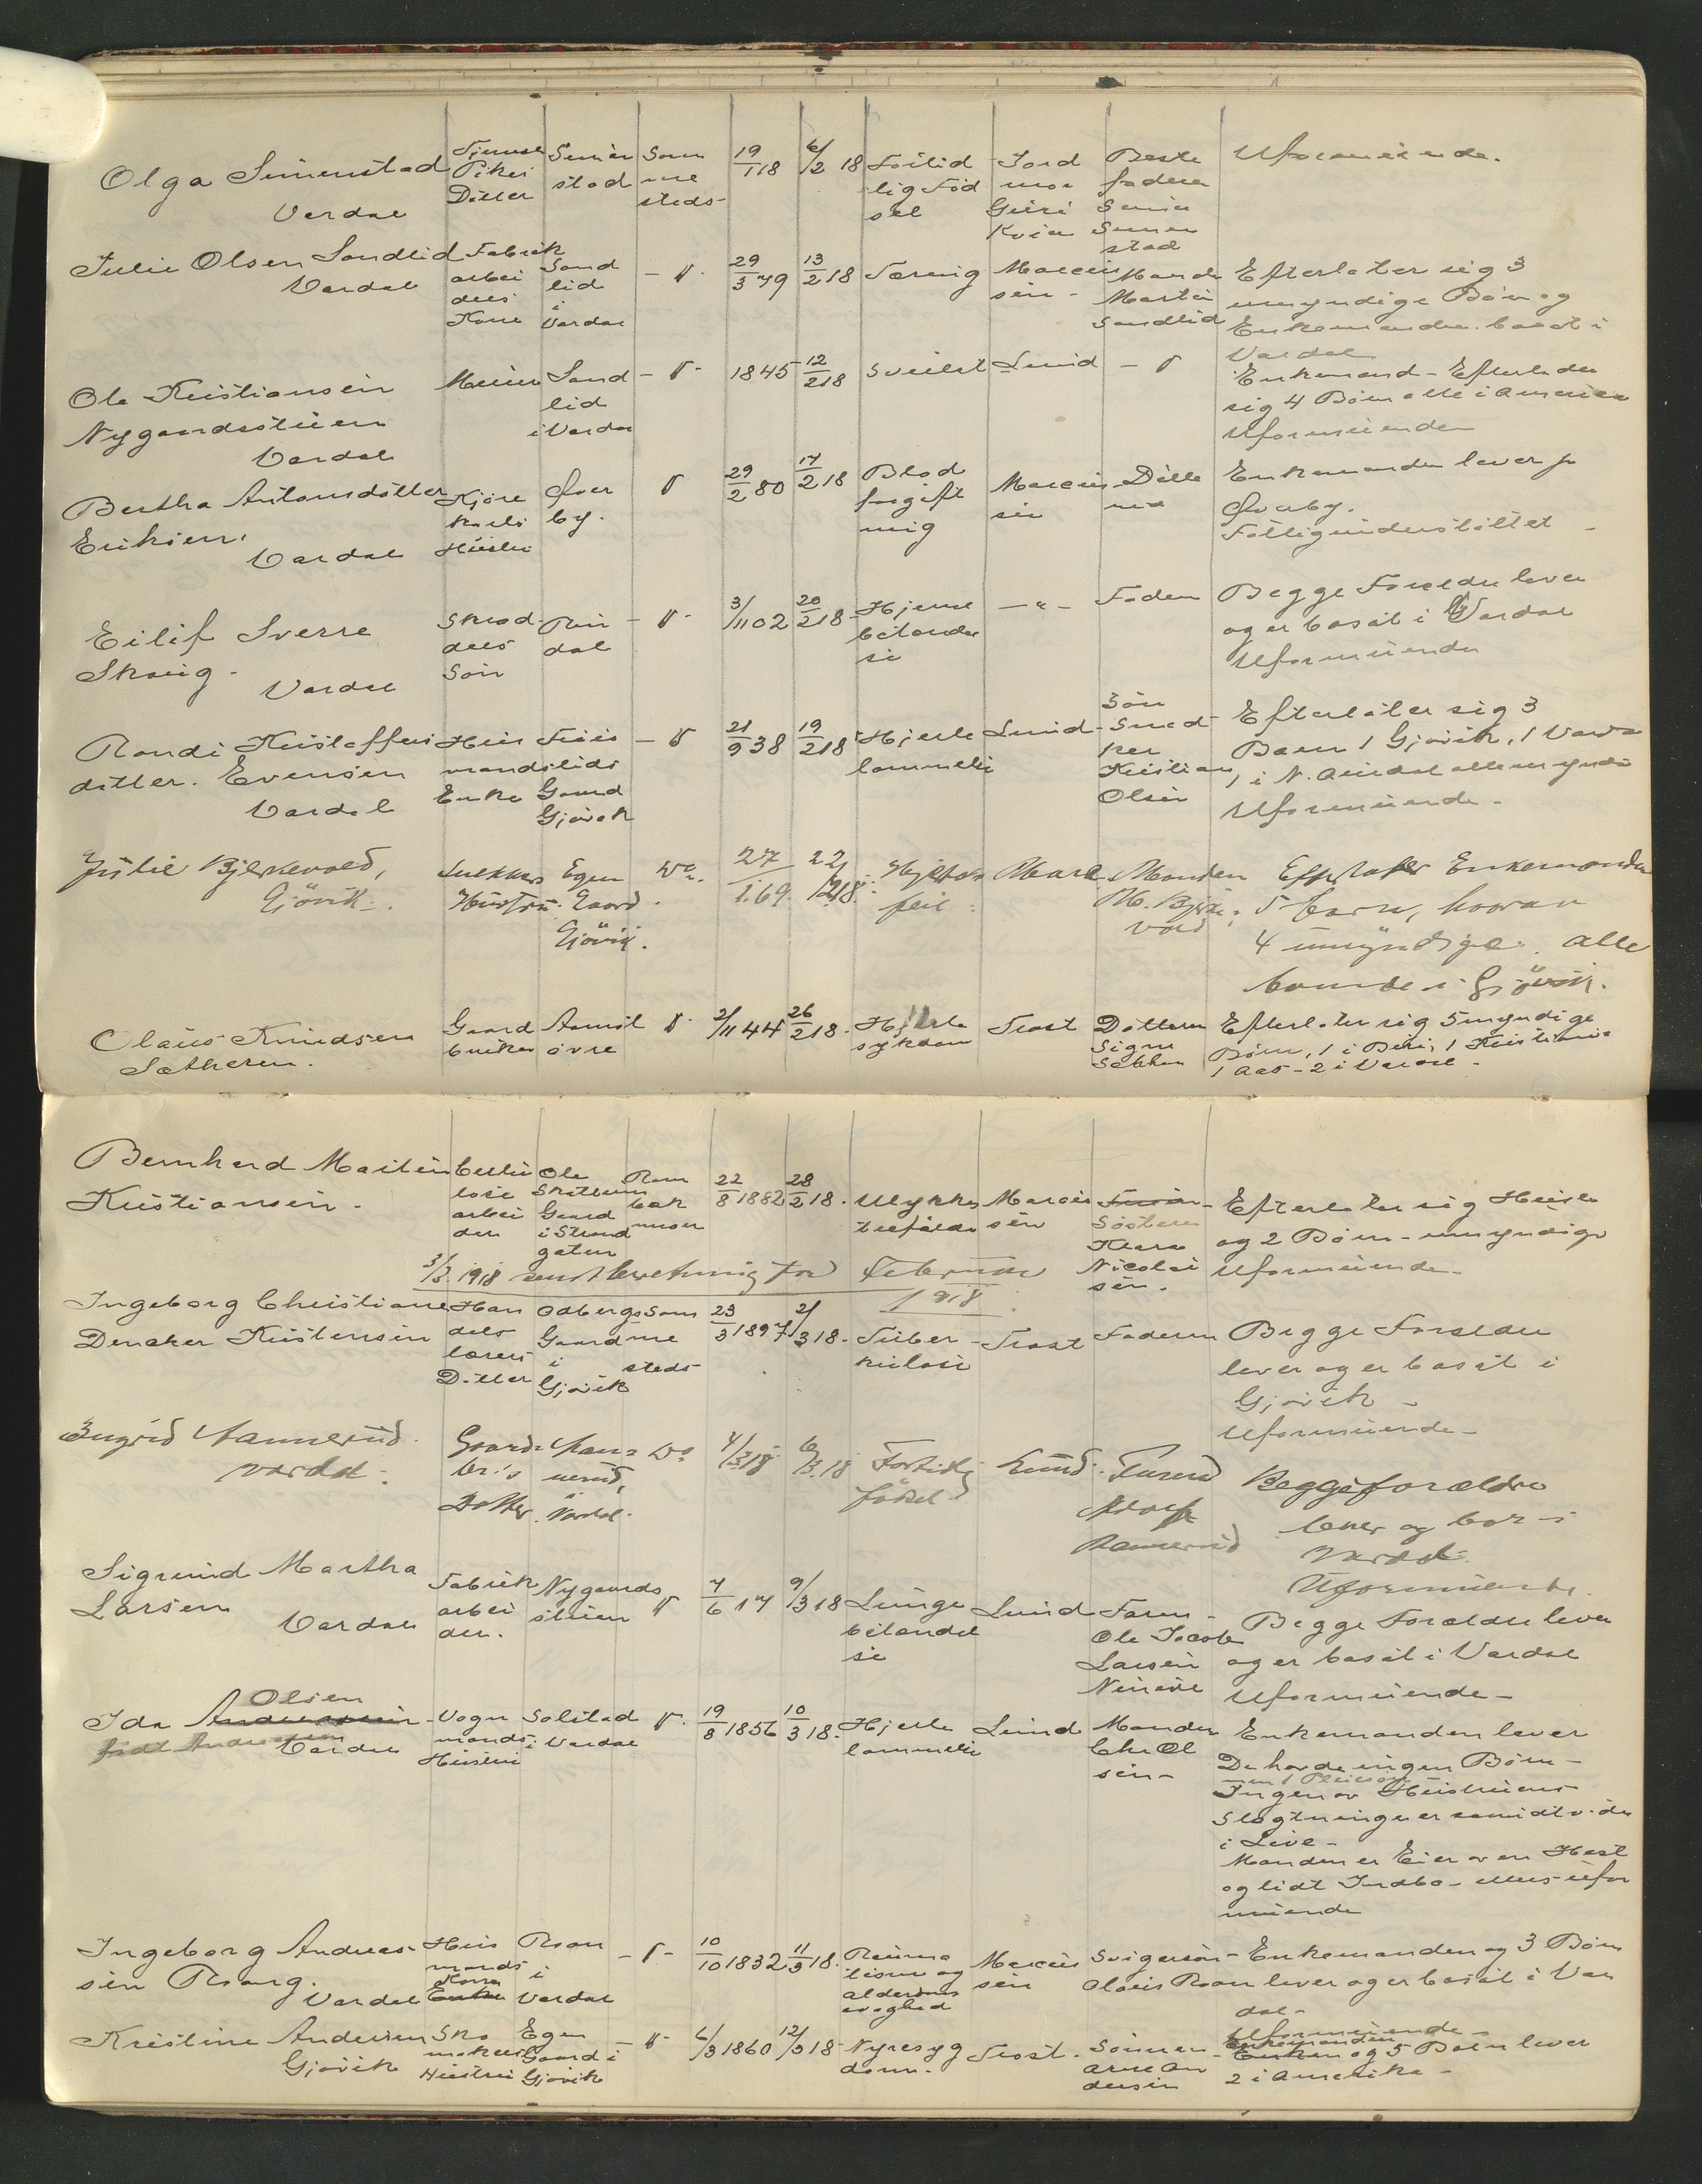 Olga Simenstad Vardal Tjenestepikes Datter Simenstad Sammesteds 19/1 18 6/2 18 Fortidlig Fødsel Jordmor Guri Kvien Bestefaderen Simen Simenstad Uformuende.
Julie Olsen Sandlid Vardal Fabrikarbeiders Kone Sandlid i Vardal - " - 29/3 79 13/2 18 Tæring Marcussen - Manden Martin Sandlid Efterlater sig 3 umyndige Børn og Enkemanden bosat i Vardal
Ole Kristiansen Nygaardsstuen Vardal Murer Sandlid i Vardal - " - 1845 12/2 18 Svulst Lund - " Enkemand - Efterlader sig 4 Børn alle i Amerika Uformuende
Bertha Antonsdatter Eriksen. Vardal Kjørekarls Hustru Øverby. " 29/2 80 17/2 18 Blodforgiftning Marcussen Datteren Enkemanden lever paa Øverby. Fattigunderstøttet -
Eilif Sverre Skoug - Vardal Skrædders Søn dal - " - 3/11 02 20/2 18 - Hjernebetændelse - " - Faderen Begge Forældre lever og er bosat i Vardal Uformuende
Randi Kristoffersdatter. Evensen Vardal Husmands Enke Gaard Gjøvik - " 21/9 38 19/2 18 Hjertelammelse Lund - Søn Snedker Kristian Olsen Efterlater sig 3 Barn 1 Gjøvik, 1 Vardal, 1 i N. Aurdal alle myndige Uformuende -
Julie Bjerkevold, Gjövik. Hustru. Egen Gaard. Gjövik. Do. 27/1 69. 22/2 18. Hjertefeil Mark Manden M. Bjerkevold Efterlater Enkemanden 5 barn, hvorav 4 umyndige. alle boende i Gjövik.
Olaus Knudsen Sætheren. Gaardbruker øvre " 2/11 44 26/2 18 - Hjertesykdom Trost Datteren Signe Efterlater sig 5 myndige Børn, 1 i Beri, 1 Kristiania 1 Aas - 2 i Vardal -
Bernhard Martin Kristiansen - arbeider Ole Gaard i Strandgaten 22/8 1882 28/2 18. Ulykkestilfælde Marcussen Søsteren Klara Nicolaisen. Efterlater sig Hustru og 2 Børn - umyndige Uformuende -
3/3 1918 sendt beretning for Februar 1918.
Ingeborg Christiane Denaker Kristensen Handelslærers Datter Odbergs Gaard i Gjøvik Sammesteds 23/3 1897 2/3 18. Tuberkulose Trost Faderen Begge Forældre lever og er bosat i Gjøvik - Uformuende -
Ingrid Nannerud. Vardal. Gaardbr.'s Datter. Nannerud, Vardal. Do 4/3 18 6/3 18 Fortidlig födsel Lund. Adolf Nannerud Begge forældre lever og bor i Vardal. Uformuende.
Sigrund Martha Larsen Vardal Fabrikarbeider. Nygaardsstuen " 7/6 17 9/3 18 Lungebetændelse Lund Faren - Ole Jacob Larsen Begge Forældre lever og er bosat i Vardal Uformuende -
Ida Andreassen Olsen født Andreassen Vardal Vognmands Hustru Solstad i Vardal " 19/8 1856 10/3 18. Hjertelammelse Lund Manden Chr Olsen - Enkemanden lever De havde ingen Børn - men 1 Pleiesøn - Ingen av Hustruens Slegtninge er saavidt vides i Live - Manden er Eier av en Hest og lidt Indbo - ellers uformuende
Ingeborg Andreassen Vardal Husmands Kone Enke i Vardal - " - 10/10 1832 11/3 18. Reumatisme og Alderdomssvaghed Marcussen Svigersøn Olaus Enkemanden og 3 Børn lever og er bosat i Vardal - Uformuende -
Kristine Andersen Gjøvik Skomakers Hustru Egen Gaard i Gjøvik - " - 6/3 1860 12/3 18 - Nyresygdom - Trost. Sønnen Arne Andersen Enken Enkemanden og 5 Barn lever 2 i Amerika -